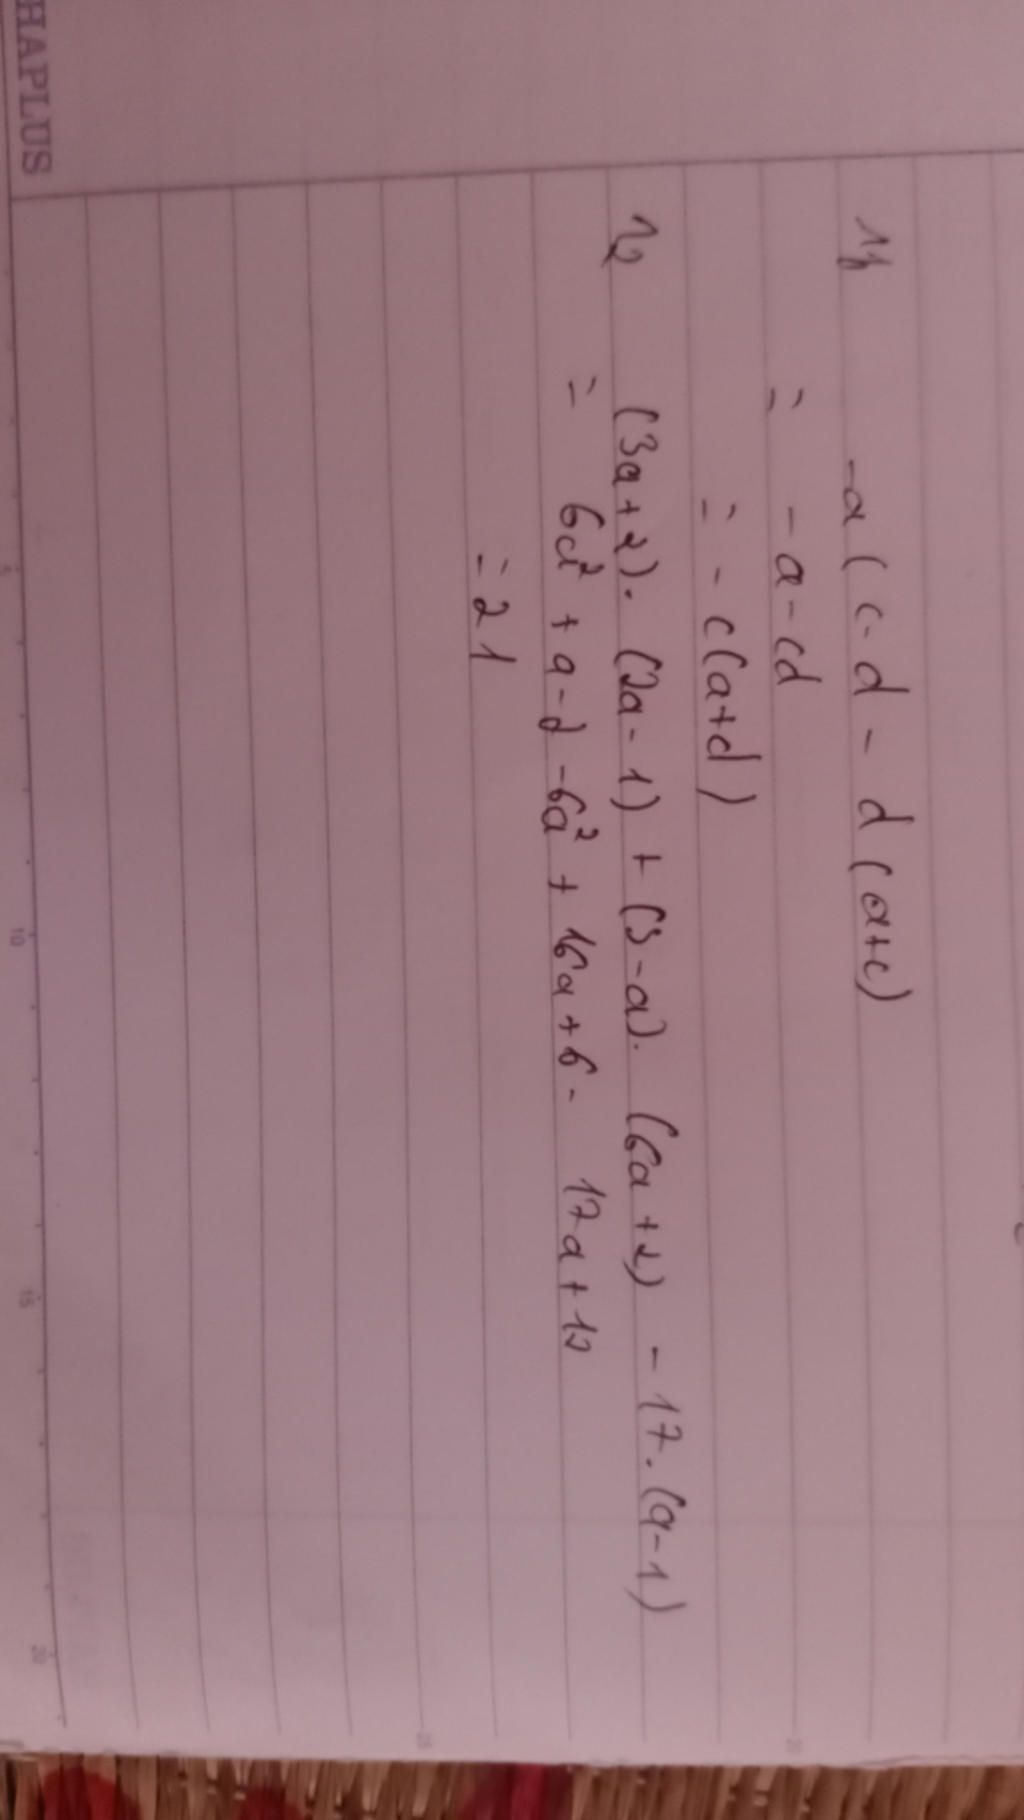 HAPLUS
-a(c-d-d(a+c)
= -a-cd
= -c(a+d)
12 (3a+2). (2a-1) + (3-a). (6a+2) - 17.(a-1)
= 6a² + a-2 -6a² + 16a+6- 17a+17
= 21
5 10 15 20